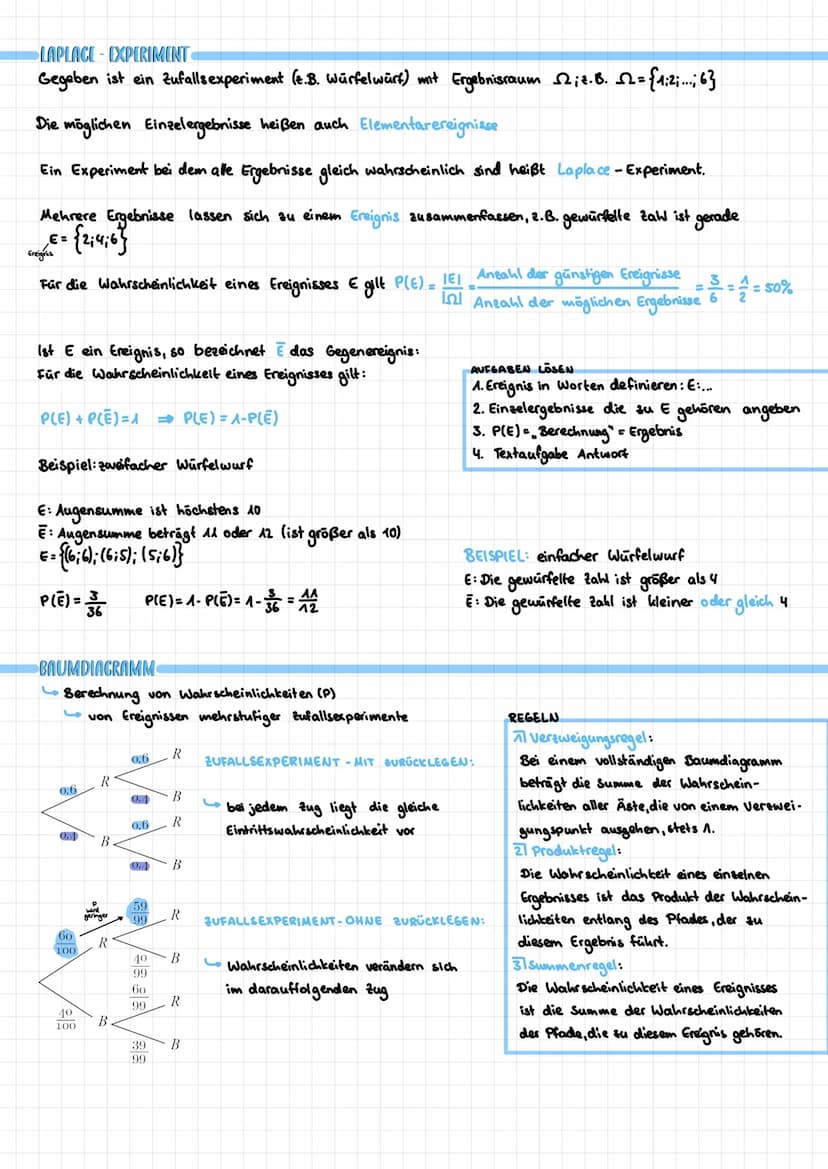 LAPLACE - EXPERIMENT
Gegeben ist ein Zufallsexperiment (z.B. Würfelwurf) mit Ergebnisraum Ω; z.B. Ω = {1;2;...;6}
Die möglichen Einzelergebnisse heißen auch Elementarereignisse
Ein Experiment bei dem alle Ergebnisse gleich wahrscheinlich sind heißt Laplace - Experiment.
Mehrere Ergebnisse lassen sich zu einem Ereignis zusammenfassen, z.B. gewürfelte Zahl ist gerade
E = {2;4;6}
Ereignis
Für die Wahrscheinlichkeit eines Ereignisses E gilt P(E) = |E| / |Ω| = Anzahl der günstigen Ereignisse / Anzahl der möglichen Ergebnisse = 3/6 = 1/2 = 50%
Ist E ein Ereignis, so bezeichnet Ē das Gegenereignis:
Für die Wahrscheinlichkeit eines Ereignisses gilt:
P(E) + P(Ē) = 1 ⇒ P(E) = 1 - P(Ē)
Beispiel: zweifacher Würfelwurf
E: Augensumme ist höchstens 10
Ē: Augensumme beträgt 11 oder 12 (ist größer als 10)
E = {(6;6); (6;5); (5;6)}
P(Ē) = 3/36 P(E) = 1 - P(Ē) = 1 - 3/36 = 11/12
AUFGABEN LÖSEN
1. Ereignis in Worten definieren: E:...
2. Einzelergebnisse die zu E gehören angeben
3. P(E) = „Berechnung" = Ergebnis
4. Textaufgabe Antwort
BEISPIEL: einfacher Würfelwurf
E: Die gewürfelte Zahl ist größer als 4
Ē: Die gewürfelte Zahl ist kleiner oder gleich 4
BAUMDIAGRAMM
Berechnung von Wahrscheinlichkeiten (P)
von Ereignissen mehrstufiger Zufallsexperimente
0,6 R
0,6 R
0,4 B
0,4 B
0,6 R
0,4 B
ZUFALLSEXPERIMENT - MIT ZURÜCKLEGEN:
bei jedem Zug liegt die gleiche
Eintrittswahrscheinlichkeit vor
P
wird
geringer
60/100 R
59/99 R
40/99 B
40/100 B
60/99 R
39/99 B
ZUFALLSEXPERIMENT - OHNE ZURÜCKLEGEN:
Wahrscheinlichkeiten verändern sich
im darauffolgenden Zug
REGELN
1) Verzweigungsregel:
Bei einem vollständigen Baumdiagramm
beträgt die Summe der Wahrschein-
lichkeiten aller Äste, die von einem Verzwei-
gungspunkt ausgehen, stets 1.
2) Produktregel:
Die Wahrscheinlichkeit eines einzelnen
Ergebnisses ist das Produkt der Wahrschein-
lichkeiten entlang des Pfades, der zu
diesem Ergebnis führt.
3) Summenregel:
Die Wahrscheinlichkeit eines Ereignisses
ist die Summe der Wahrscheinlichkeiten
der Pfade, die zu diesem Ereignis gehören.